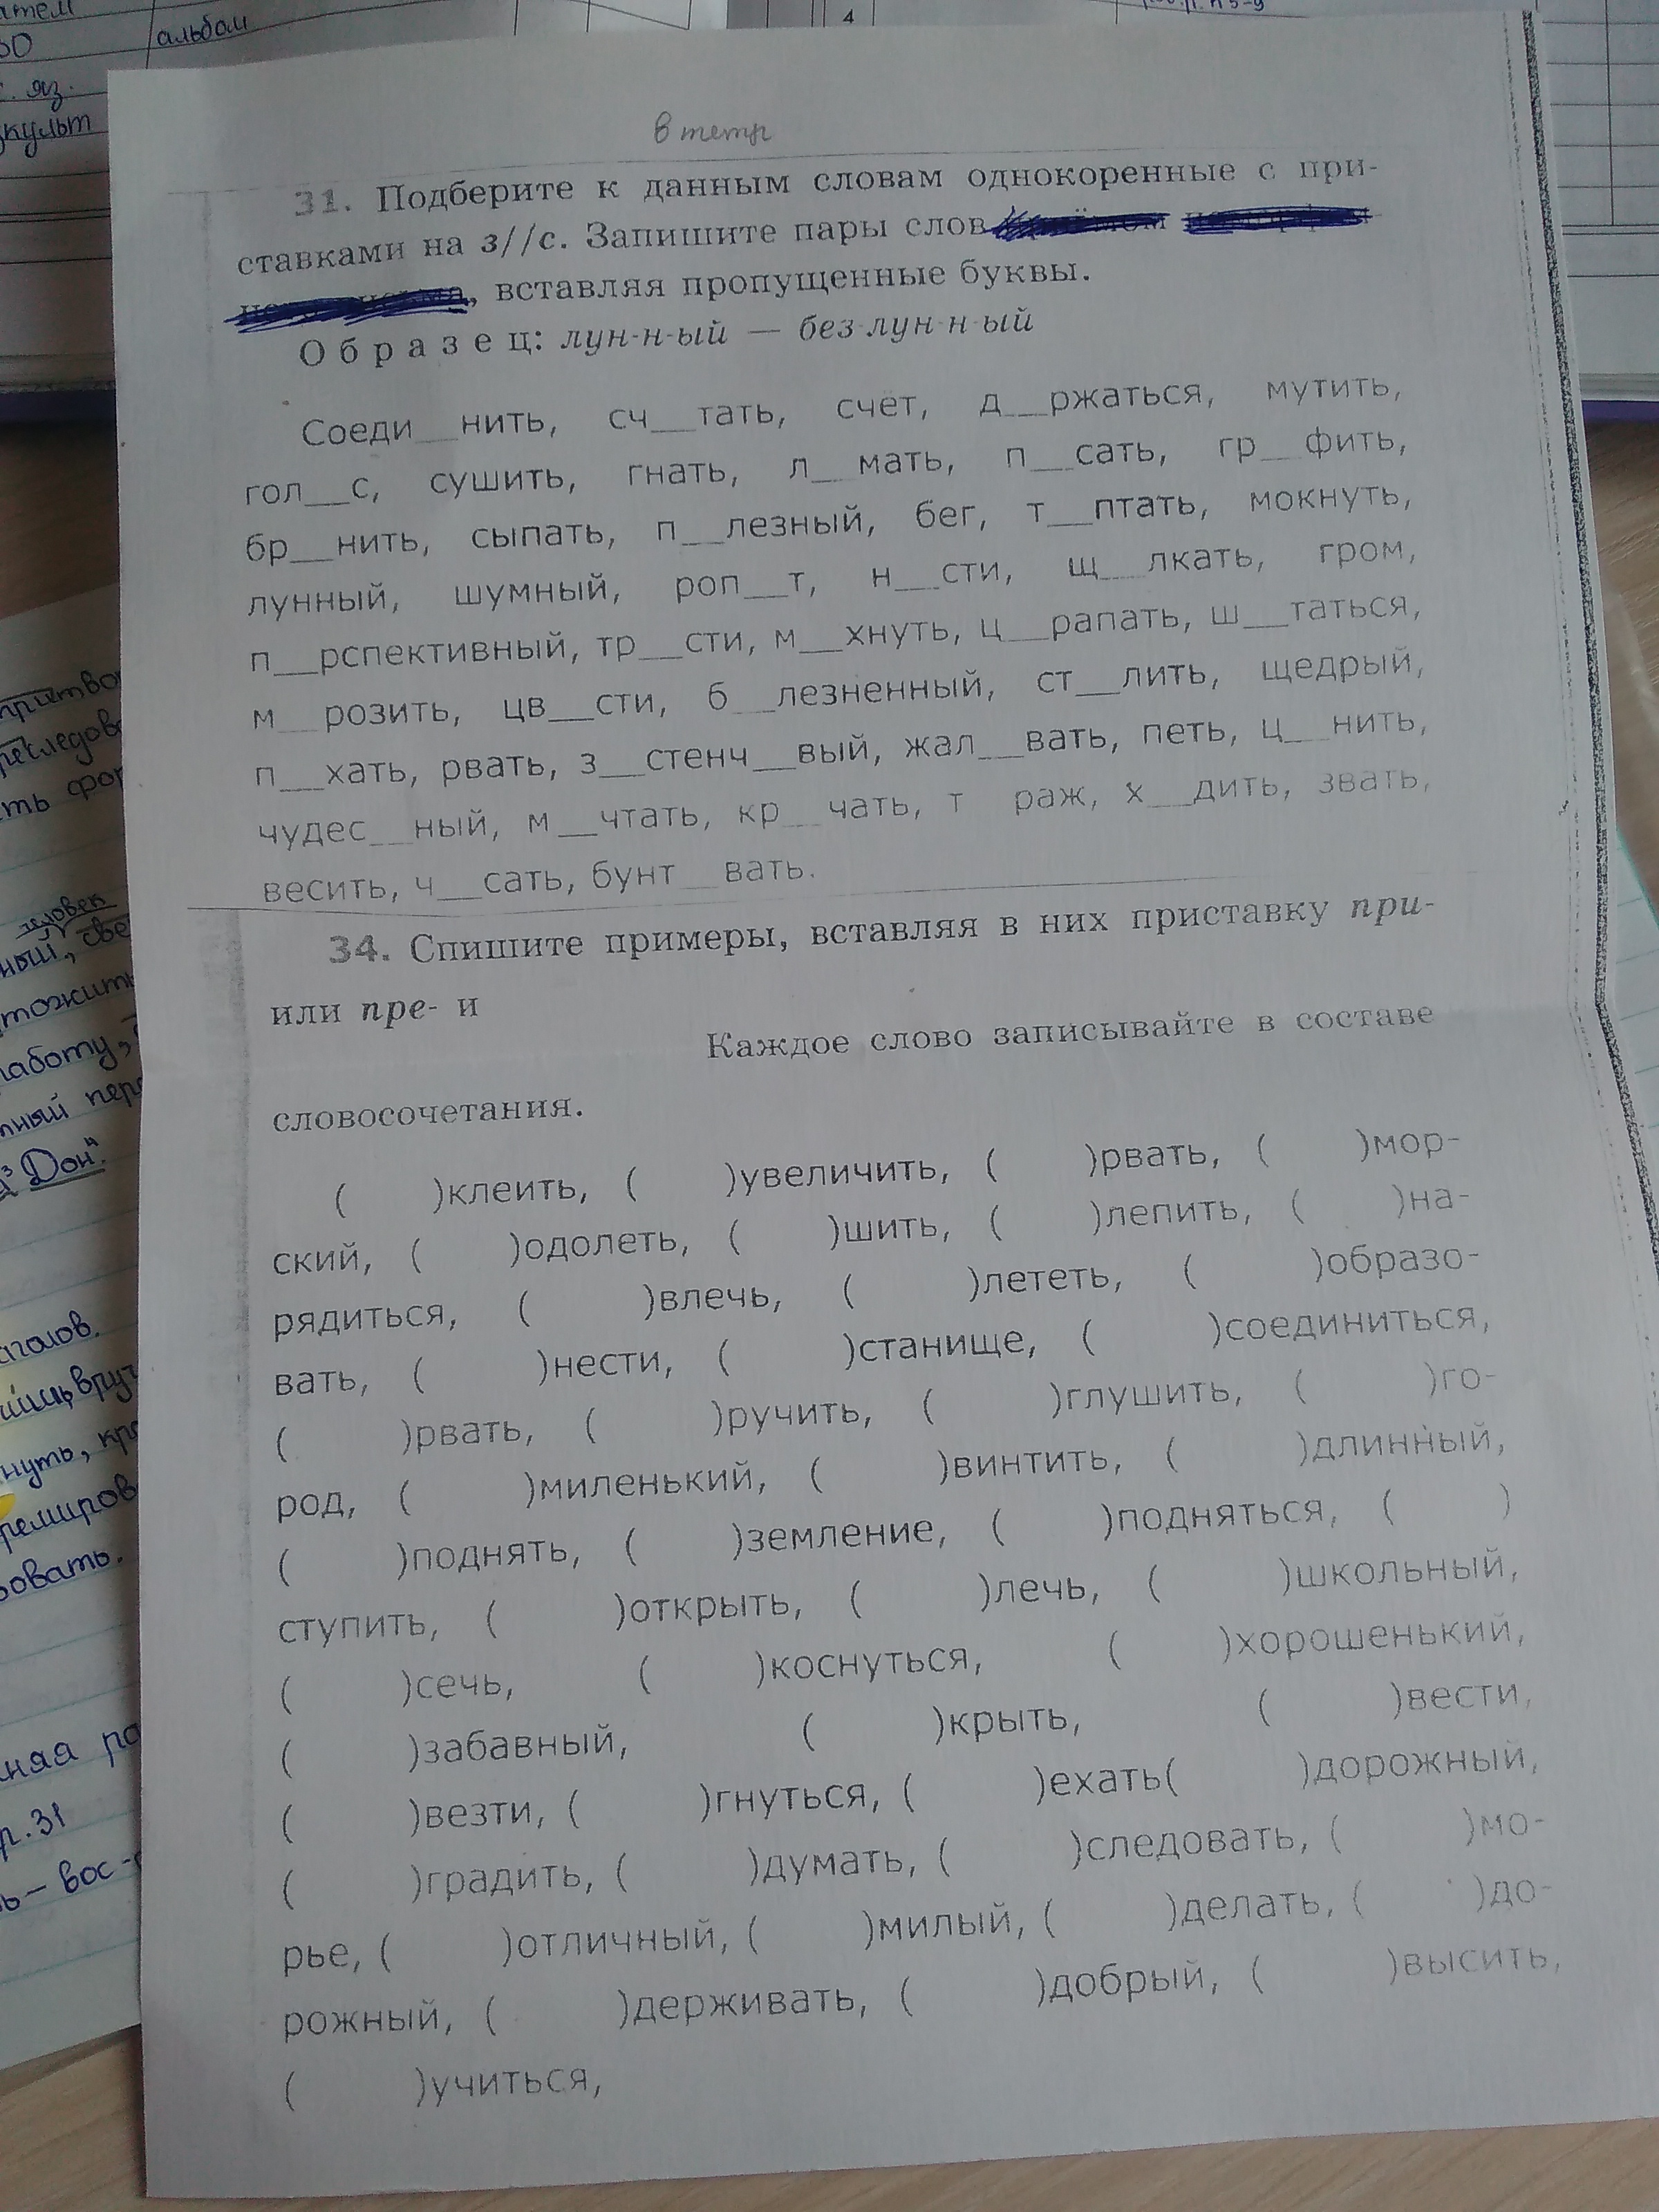 альбом
4
яз.
культ
в тетр
31. Подберите к данным словам однокоренные с при-
ставками на з//с. Запишите пары слов
, вставляя пропущенные буквы.
Образец: лун-н-ый — без-лун-н-ый
Соеди__нить, сч__тать, счёт, д__ржаться, мутить,
гол__с, сушить, гнать, л__мать, п__сать, гр__фить,
бр__нить, сыпать, п__лезный, бег, т__птать, мокнуть,
лунный, шумный, роп__т, н__сти, щ__лкать, гром,
п__рспективный, тр__сти, м__хнуть, ц__рапать, ш__таться,
м__розить, цв__сти, б__лезненный, ст__лить, щедрый,
п__хать, рвать, з__стенч__вый, жал__вать, петь, ц__нить,
чудес__ный, м__чтать, кр__чать, т__раж, х__дить, звать,
весить, ч__сать, бунт__вать.
34. Спишите примеры, вставляя в них приставку при-
или пре- и
Каждое слово записывайте в составе
словосочетания.
( )клеить, ( )увеличить, ( )рвать, ( )мор-
ский, ( )одолеть, ( )шить, ( )лепить, ( )на-
рядиться, ( )влечь, ( )лететь, ( )образо-
вать, ( )нести, ( )станище, ( )соединиться,
( )рвать, ( )ручить, ( )глушить, ( )го-
род, ( )миленький, ( )винтить, ( )длинный,
( )поднять, ( )земление, ( )подняться, ( )
ступить, ( )открыть, ( )лечь, ( )школьный,
( )сечь, ( )коснуться, ( )хорошенький,
( )забавный, ( )крыть, ( )вести,
( )везти, ( )гнуться, ( )ехать( )дорожный,
( )градить, ( )думать, ( )следовать, ( )мо-
рье, ( )отличный, ( )милый, ( )делать, ( )до-
рожный, ( )держивать, ( )добрый, ( )высить,
( )учиться,
человек
Дон".
р. 31
вос-